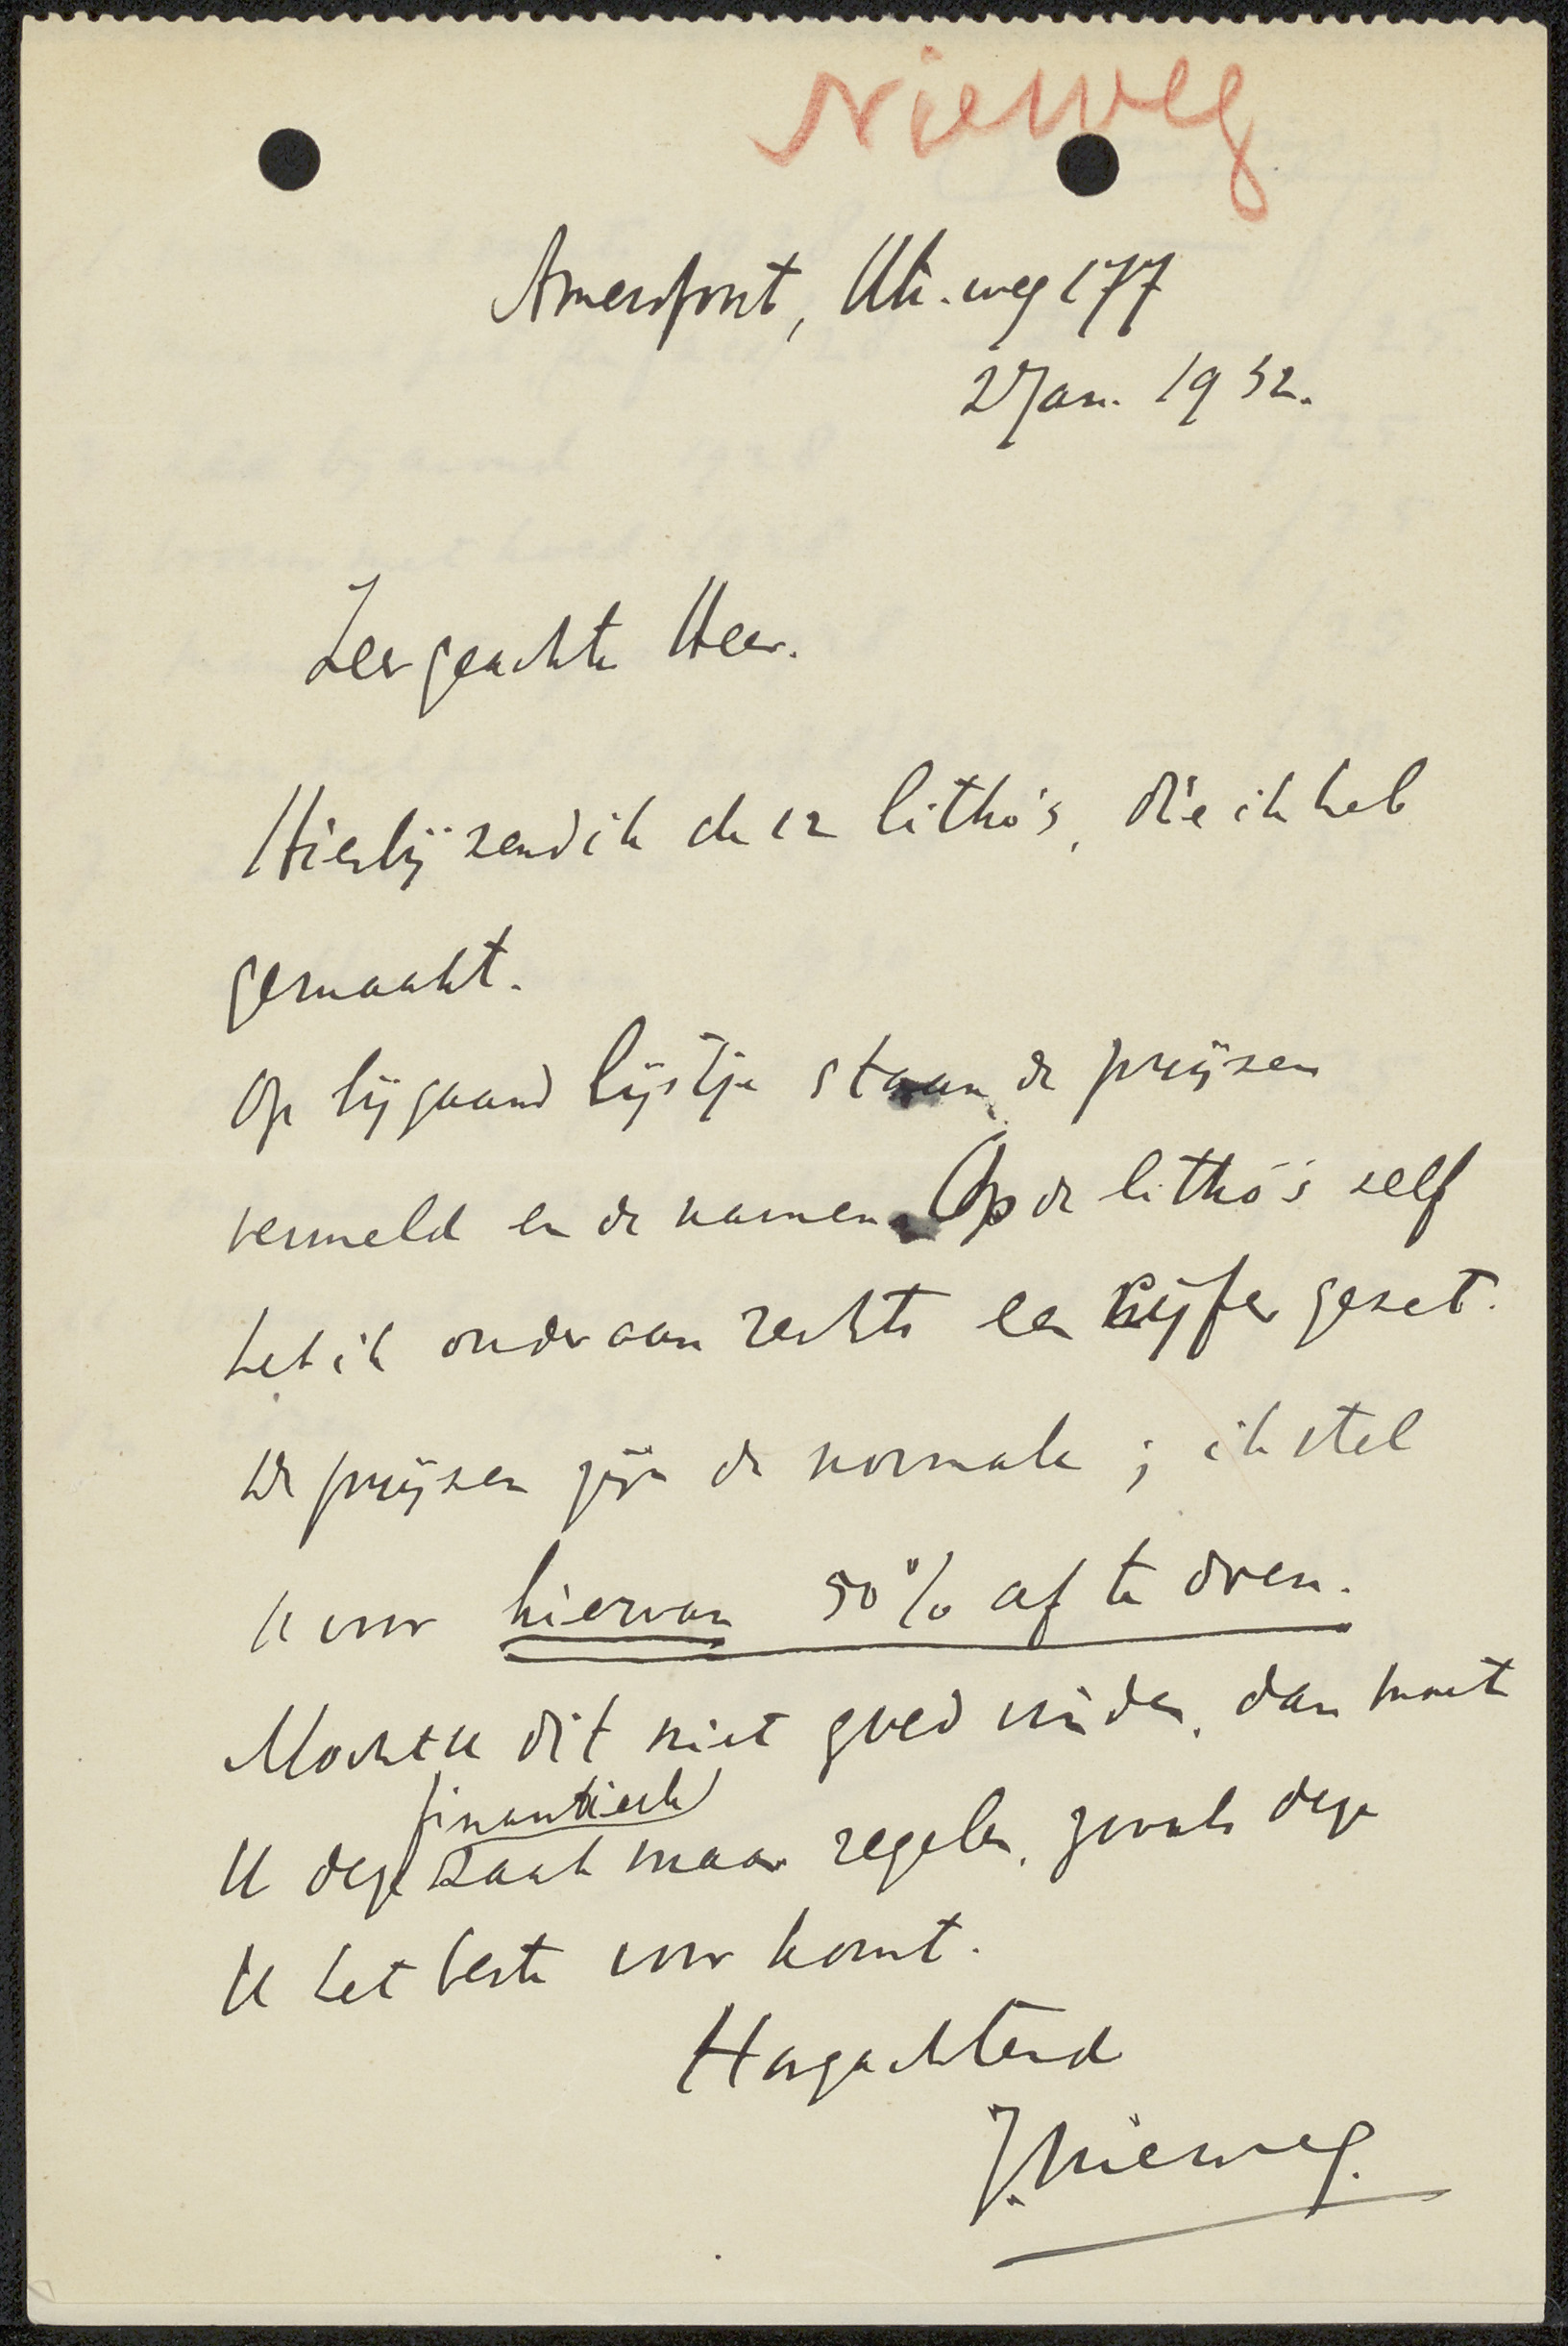 Nieweg
Amersfoort, Utr. weg 177
2 Jan. 1932.
Zeer geachte Heer.
Hierbij zend ik de 12 litho's, die ik heb
gemaakt.
Op bijgaand lijstje staan de prijzen
vermeld en de namen. Op de litho's zelf
heb ik onderaan rechts een cijfer gezet.
De prijzen zijn de normale; ik stel
U voor hiervan 50% af te doen.
Mocht U dit niet goed vinden, dan moet
financieele
U deze zaak maar regelen, zooals deze
U het beste voor komt.
Hoogachtend
J. Nieweg.